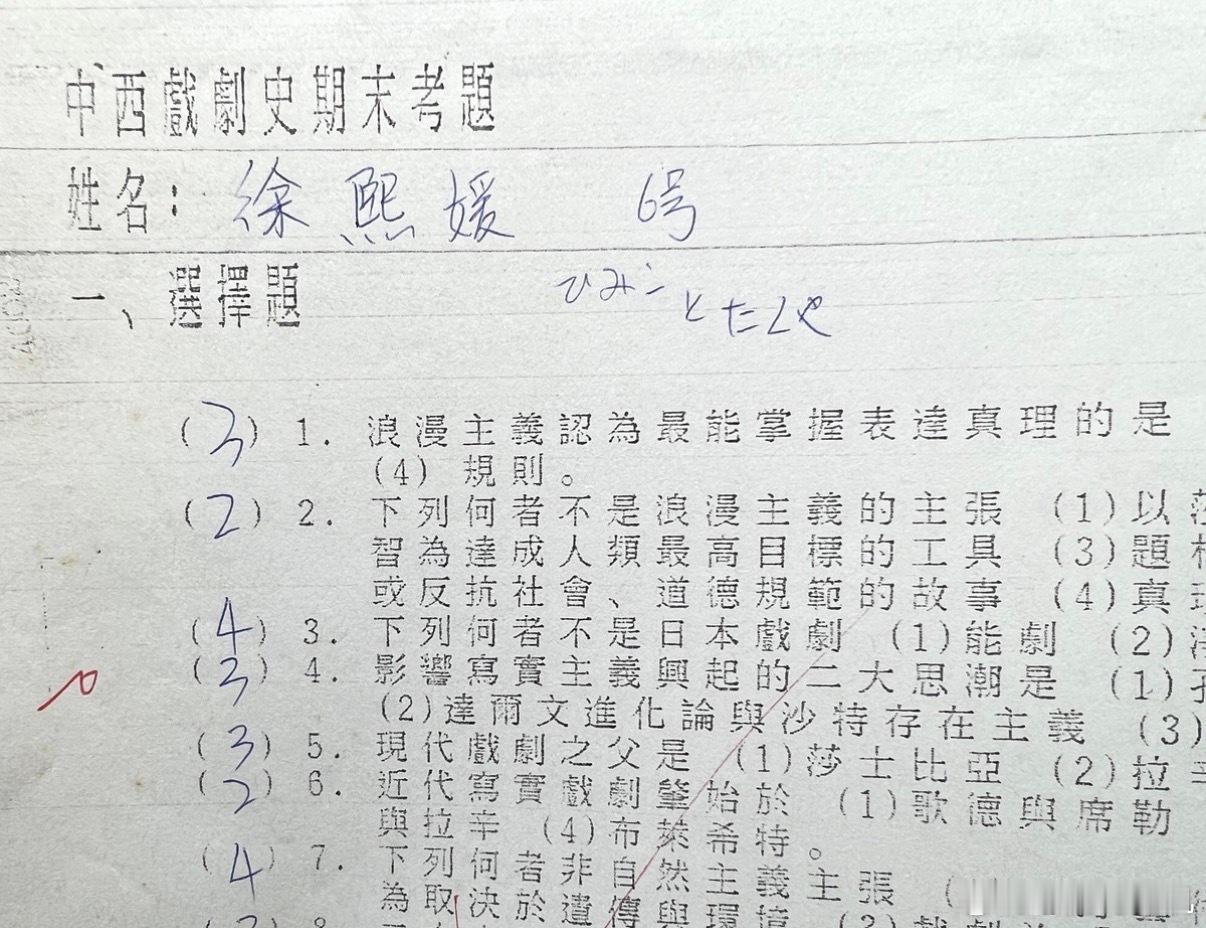 中西戲劇史期末考題
姓名：徐熙媛 6号
一、選擇題
ひみこ
とたくや
(3) 1. 浪漫主義認為最能掌握表達真理的是
(4) 規則。
(2) 2. 下列何者不是浪漫主義的主張 (1)以
智為達成人類最高目標的工具 (3)題
或反抗社會、道德規範的故事 (4)真
(4) 3. 下列何者不是日本戲劇 (1)能劇 (2)
(3) 4. 影響寫實主義興起的二大思潮是 (1)
(2)達爾文進化論與沙特存在主義 (3)
(3) 5. 現代戲劇之父是 (1)莎士比亞 (2)拉辛
(2) 6. 近代寫實戲劇肇始於 (1)歌德與席勒
與拉辛 (4)布萊希特。
(4) 7. 下列何者非自然主義主張 (
為取決於遺傳與環境